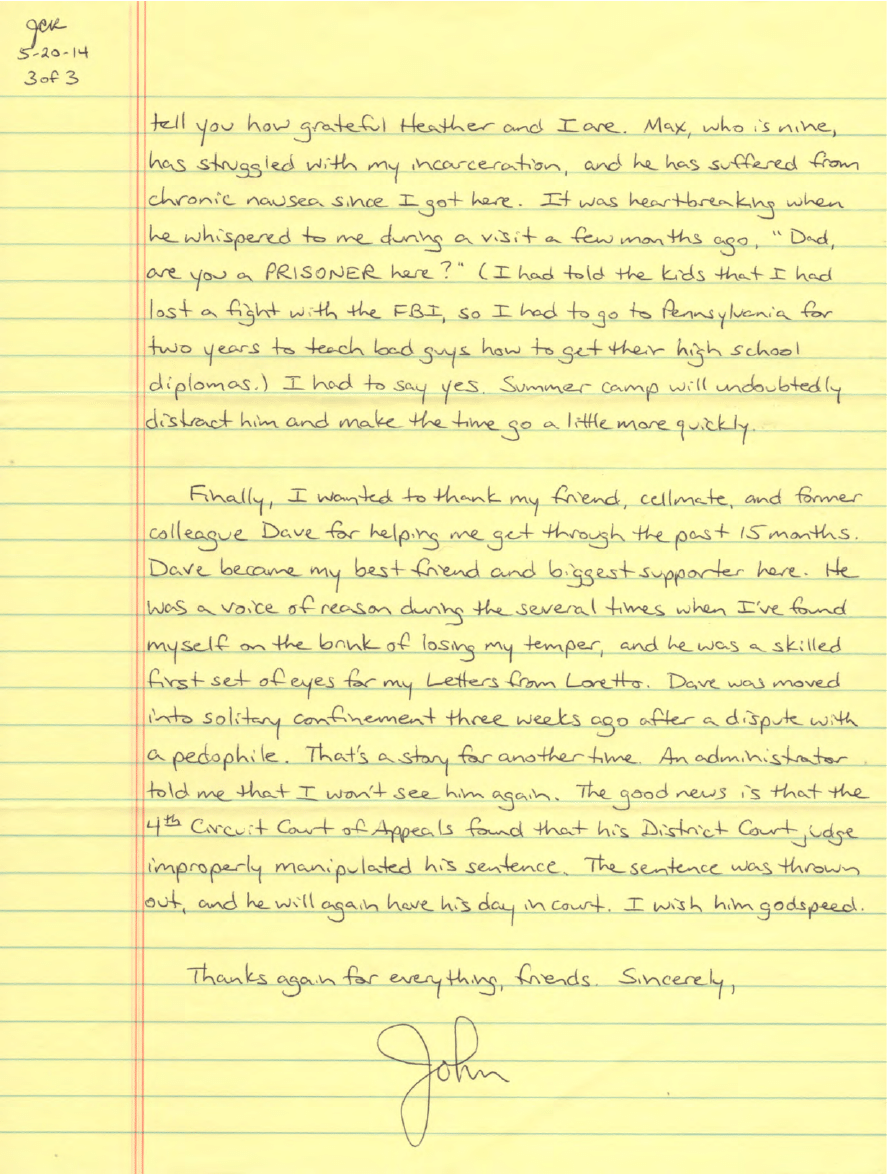 JCK
5-20-14
3 of 3
tell you how grateful Heather and I are. Max, who is nine,
has struggled with my incarceration, and he has suffered from
chronic nausea since I got here. It was heartbreaking when
he whispered to me during a visit a few months ago, "Dad,
are you a PRISONER here?" (I had told the kids that I had
lost a fight with the FBI, so I had to go to Pennsylvania for
two years to teach bad guys how to get their high school
diplomas.) I had to say yes. Summer camp will undoubtedly
distract him and make the time go a little more quickly.
Finally, I wanted to thank my friend, cellmate, and former
colleague Dave for helping me get through the past 15 months.
Dave became my best friend and biggest supporter here. He
was a voice of reason during the several times when I've found
myself on the brink of losing my temper, and he was a skilled
first set of eyes for my Letters from Loretto. Dave was moved
into solitary confinement three weeks ago after a dispute with
a pedophile. That's a story for another time. An administrator
told me that I won't see him again. The good news is that the
4th Circuit Court of Appeals found that his District Court judge
improperly manipulated his sentence. The sentence was thrown
out, and he will again have his day in court. I wish him godspeed.
Thanks again for everything, friends. Sincerely,
John